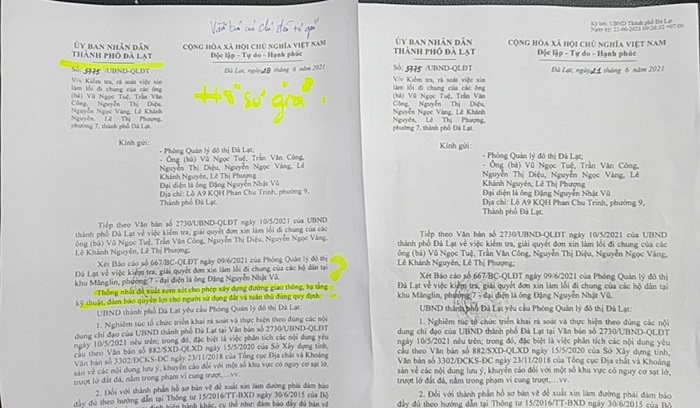 Văn bản có chỉ
ỦY BAN NHÂN DÂN
THÀNH PHỐ ĐÀ LẠT
CỘNG HÒA XÃ HỘI CHỦ NGHĨA VIỆT NAM
Độc lập - Tự do - Hạnh phúc
Số: 3775 /UBND-QLDT
Đà Lạt, ngày 28 tháng 6 năm 2021
V/v Kiểm tra, rà soát việc xin
làm lối đi chung của các ông
(bà) Vũ Ngọc Tuệ, Trần Văn
Công, Nguyễn Thị Diệu,
Nguyễn Ngọc Vàng, Lê Khánh
Nguyên, Lê Thị Phượng,
phường 7, thành phố Đà Lạt.
Hồ sơ giả ?
Kính gửi:
- Phòng Quản lý đô thị Đà Lạt;
- Ông (bà) Vũ Ngọc Tuệ, Trần Văn Công,
Nguyễn Thị Diệu, Nguyễn Ngọc Vàng, Lê
Khánh Nguyên, Lê Thị Phượng
Đại diện là ông Đặng Nguyễn Nhật Vũ
Địa chỉ: Lô A9 KQH Phan Chu Trinh, phường 9,
Thành phố Đà Lạt.
Tiếp theo Văn bản số 2730/UBND-QLDT ngày 10/5/2021 của UBND
thành phố Đà Lạt về việc kiểm tra, giải quyết đơn xin làm lối đi chung của các
ông (bà) Vũ Ngọc Tuệ, Trần Văn Công, Nguyễn Thị Diệu, Nguyễn Ngọc Vàng,
Lê Khánh Nguyên, Lê Thị Phượng;
Xét Báo cáo số 667/BC-QLDT ngày 09/6/2021 của Phòng Quản lý đô thị
Đà Lạt về việc kiểm tra, giải quyết đơn xin làm lối đi chung của các hộ dân tại
khu Mãnglin, phường 7 - đại diện là ông Đặng Nguyễn Nhật Vũ.
Thống nhất đề xuất xem xét cho phép xây dựng đường giao thông, hạ tầng
kỹ thuật, đảm bảo quyền lợi cho người sử dụng đất và tuân thủ đúng quy định.
?
UBND thành phố Đà Lạt yêu cầu Phòng Quản lý đô thị Đà Lạt:
1. Nghiêm túc tổ chức triển khai rà soát và thực hiện theo đúng các nội
dung chỉ đạo của UBND thành phố Đà Lạt tại Văn bản số 2730/UBND-QLDT
ngày 10/5/2021 nêu trên; trong đó, đặc biệt là việc phân tích các nội dung yêu
cầu theo Văn bản số 882/SXD-QLXD ngày 15/5/2020 của Sở Xây dựng tỉnh,
Văn bản số 3302/ĐCKS-ĐC ngày 23/11/2018 của Tổng cục Địa chất và Khoáng
sản về các nội dung lưu ý, khuyến cáo đối với một số khu vực có nguy cơ sạt lở,
trượt lở đất đá, nằm trong phạm vi cung trượt,....vv.
2. Đối với thành phần hồ sơ bản vẽ đề xuất xin làm đường phải đảm bảo
đầy đủ theo hướng dẫn tại Thông tư 15/2016/TT-BXD ngày 30/6/2015 của Bộ
Ký bởi: UBND Thành phố Đà Lạt
ỦY BAN NHÂN DÂN
THÀNH PHỐ ĐÀ LẠT
CỘNG HÒA XÃ HỘI CHỦ NGHĨA VIỆT NAM
Độc lập - Tự do - Hạnh phúc
Số: 3775 /UBND-QLDT
Đà Lạt, ngày 21 tháng 6 năm 2021
V/v Kiểm tra, rà soát việc xin
làm lối đi chung của các ông
(bà) Vũ Ngọc Tuệ, Trần Văn
Công, Nguyễn Thị Diệu,
Nguyễn Ngọc Vàng, Lê Khánh
Nguyên, Lê Thị Phượng,
phường 7, thành phố Đà Lạt.
Kính gửi:
- Phòng Quản lý đô thị Đà Lạt;
- Ông (bà) Vũ Ngọc Tuệ, Trần Văn Công,
Nguyễn Thị Diệu, Nguyễn Ngọc Vàng, Lê
Khánh Nguyên, Lê Thị Phượng
Đại diện là ông Đặng Nguyễn Nhật Vũ
Địa chỉ: Lô A9 KQH Phan Chu Trinh, phường 9,
Thành phố Đà Lạt.
Tiếp theo Văn bản số 2730/UBND-QLDT ngày 10/5/2021 của UBND
thành phố Đà Lạt về việc kiểm tra, giải quyết đơn xin làm lối đi chung của các
ông (bà) Vũ Ngọc Tuệ, Trần Văn Công, Nguyễn Thị Diệu, Nguyễn Ngọc Vàng,
Lê Khánh Nguyên, Lê Thị Phượng;
Xét Báo cáo số 667/BC-QLDT ngày 09/6/2021 của Phòng Quản lý đô thị
Đà Lạt về việc kiểm tra, giải quyết đơn xin làm lối đi chung của các hộ dân tại
khu Mãnglin, phường 7 - đại diện là ông Đặng Nguyễn Nhật Vũ.
UBND thành phố Đà Lạt yêu cầu Phòng Quản lý đô thị Đà Lạt:
1. Nghiêm túc tổ chức triển khai rà soát và thực hiện theo đúng các nội
dung chỉ đạo của UBND thành phố Đà Lạt tại Văn bản số 2730/UBND-QLDT
ngày 10/5/2021 nêu trên; trong đó, đặc biệt là việc phân tích các nội dung yêu
cầu theo Văn bản số 882/SXD-QLXD ngày 15/5/2020 của Sở Xây dựng tỉnh,
Văn bản số 3302/ĐCKS-ĐC ngày 23/11/2018 của Tổng cục Địa chất và Khoáng
sản về các nội dung lưu ý, khuyến cáo đối với một số khu vực có nguy cơ sạt lở,
trượt lở đất đá, nằm trong phạm vi cung trượt,....vv.
2. Đối với thành phần hồ sơ bản vẽ đề xuất xin làm đường phải đảm bảo
đầy đủ theo hướng dẫn tại Thông tư 15/2016/TT-BXD ngày 30/6/2015 của Bộ